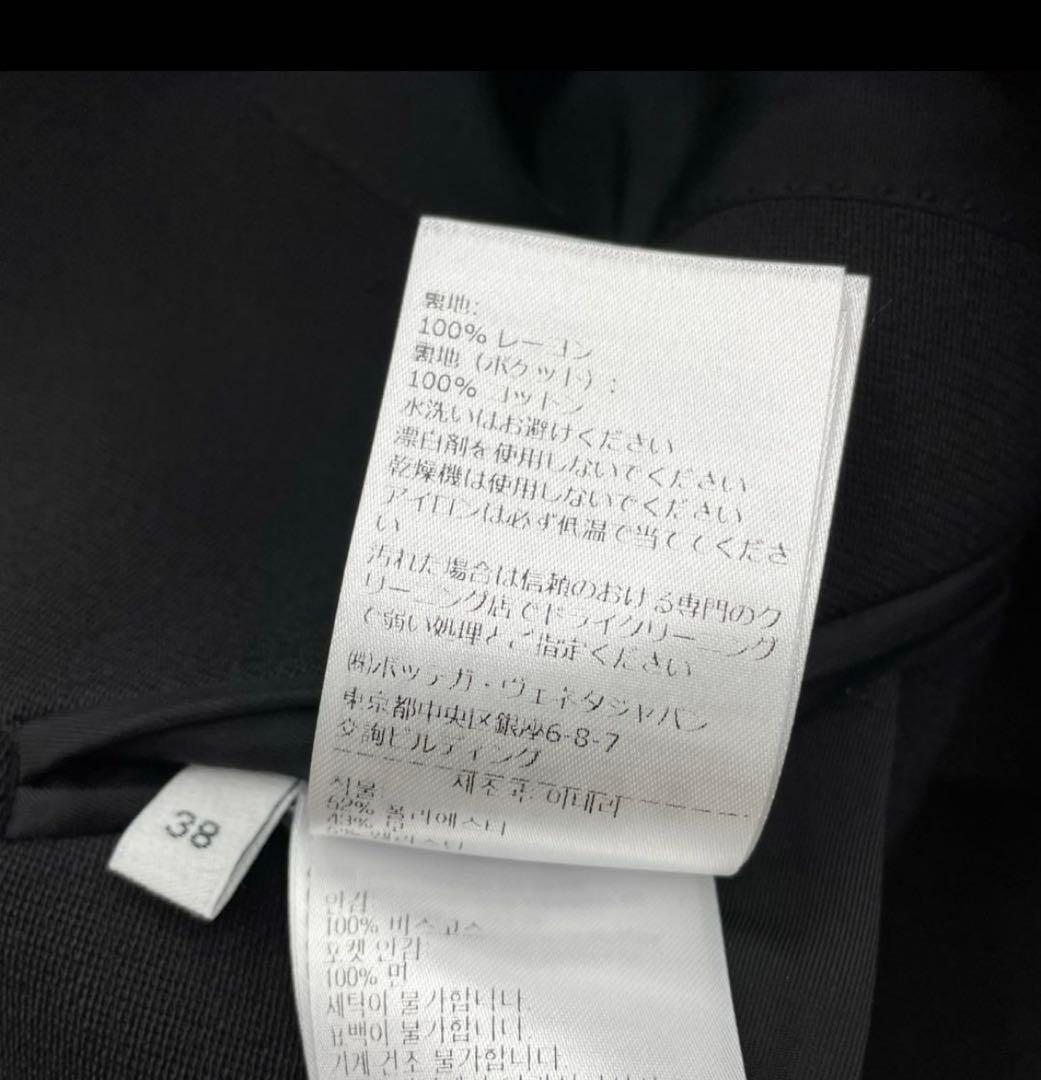 裏地:
100% レーヨン
裏地 (ポケット) :
100% コットン
水洗いはお避けください
漂白剤を使用しないでください
乾燥機は使用しないでください
アイロンは必ず低温で当ててくださ
い
汚れた場合は信頼のおける専門のク
リーニング店でドライクリーニング
で弱い処理とご指定ください
㈱ボッテガ・ヴェネタジャパン
東京都中央区銀座6-8-7
交詢ビルディング
제조국: 이태리
폴리에스터
38
안감
100% 비스코스
포켓 안감
100% 면
세탁이 불가합니다.
표백이 불가합니다.
기계 건조 불가합니다.